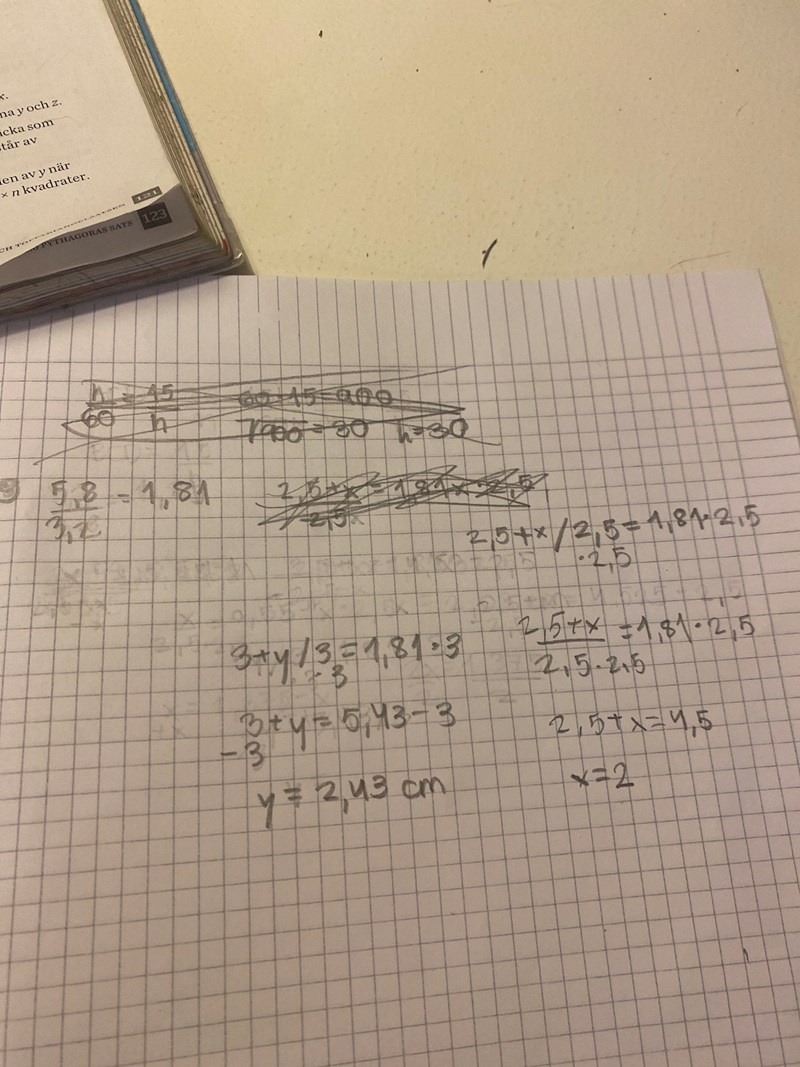 x.
na y och z.
cka som
står av
len av y når
× n kvadrater.
121
PYTHAGORAS SATS 123
h/60 = 15/h 60·15=900
√900=30 h=30
9 5,8/3,2 = 1,81
2,5+x/2,5=1,81·2,5
·2,5
3+y/3=1,81·3
·3
2,5+x/2,5·2,5=1,81·2,5
3+y=5,43-3
-3
2,5+x=4,5
y=2,43 cm
x=2